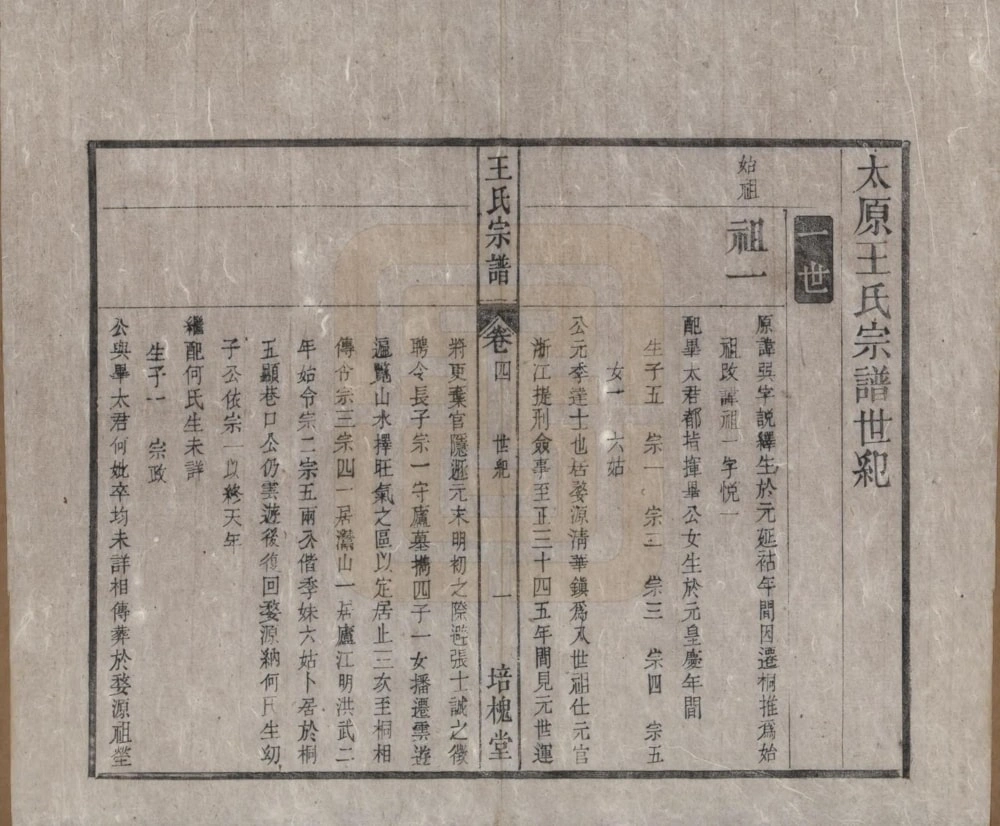 太原王氏宗譜世紀
一世
始祖
祖一
原諱巽字說繹生於元延祜年間因遷桐推爲始
祖改諱祖一字悅一
配畢太君都指揮畢公女生於元皇慶年間
生子五 宗一 宗二 宗三 宗四 宗五
女一 六姑
公元季達士也居婺源清華鎮爲八世祖仕元官
浙江提刑僉事至正二十四五年間見元世運
王氏宗譜
卷四 世紀 一 培槐堂
將更棄官隱遯元末明初之際避張士誠之徵
聘令長子宗一守廬墓攜四子一女播遷雲遊
遍覽山水擇旺氣之區以定居止三次至桐相
傳令宗三宗四一居灊山一居廬江明洪武二
年始令宗二宗五兩人偕季妹六姑卜居於桐
五顯巷口公仍雲遊後復回婺源納何氏生幼
子公依宗一以終天年
繼配何氏生未詳
生子一 宗政
公與畢太君何妣卒均未詳相傳葬於婺源祖塋